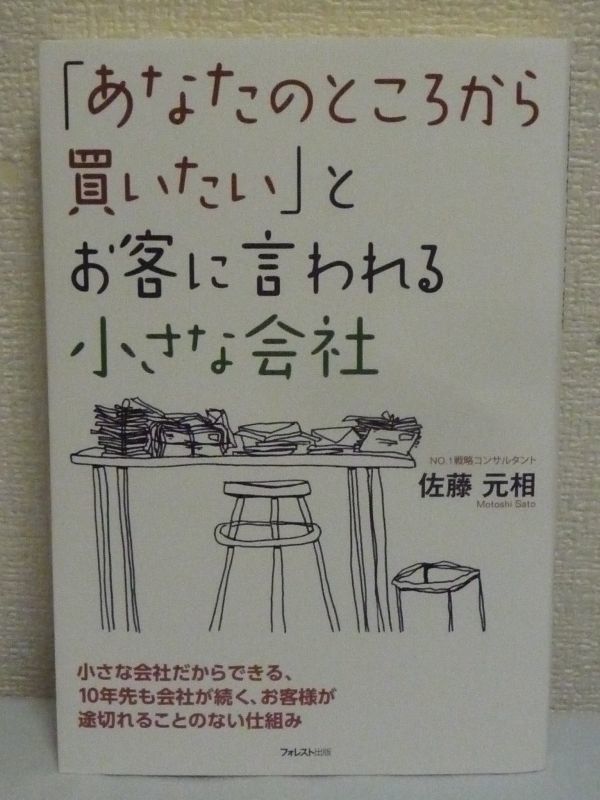 「あなたのところから
買いたい」と
お客に言われる
小さな会社
NO.1戦略コンサルタント
佐藤 元相
Motoshi Sato
小さな会社だからできる、
10年先も会社が続く、お客様が
途切れることのない仕組み
フォレスト出版